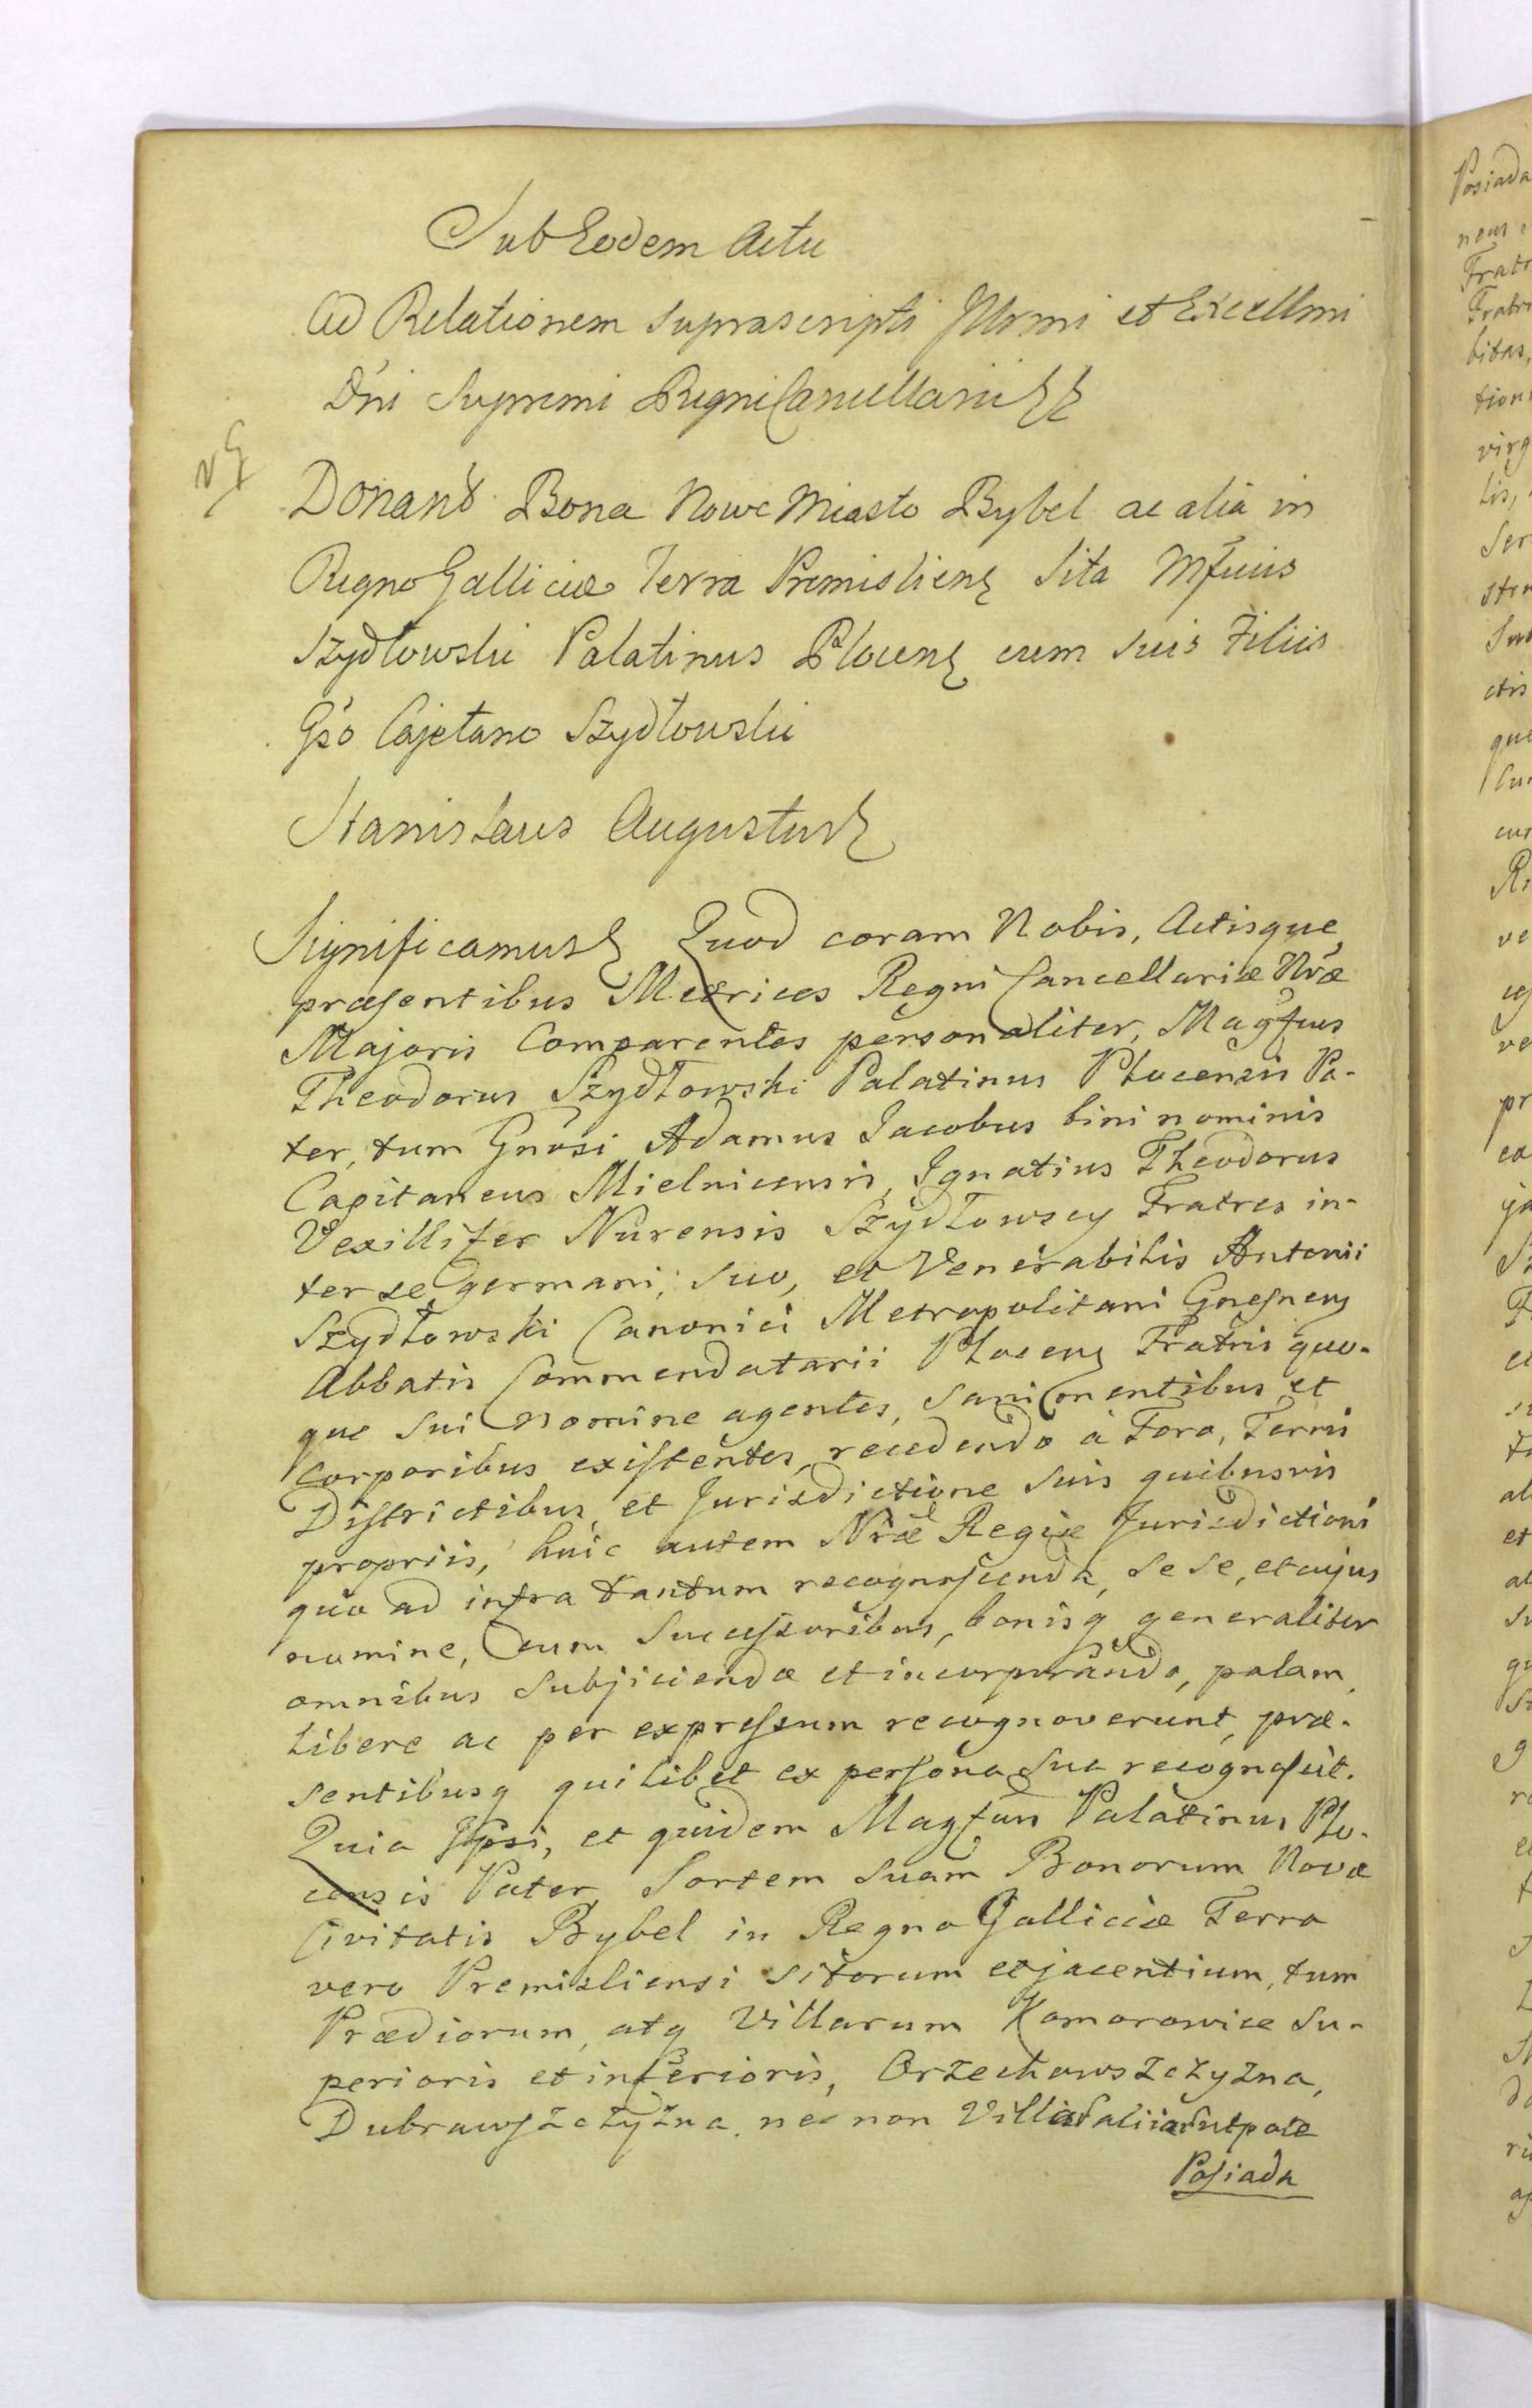 Sub Eodem Actu
Ad Relationem Suprascripti Illrmi et Excellmi
Dni Supremi Regni Cancellarii
Donant Bona Nowe Miasto Bybel ac alia in
Regno Galliciæ Terra Premislien Sita Mgfcus
Szydłowski Palatinus Plocen cum Suis Filiis
Gso Cajetano Szydłowski
Stanislaus Augustus
Significamus Quod coram Nobis, Actisque
præsentibus Metrices Regni Cancellariæ Nræ
Majoris Comparentes personaliter, Magfcus
Theodorus Szydłowski Palatinus Plocensis Pa-
ter, tum Gnosi Adamus Jacobus bini nominis
Capitaneus Mielnicensis, Ignatius Theodorus
Vexillifer Nurensis Szydłowscy Fratres in-
ter se germani, suo, et Venerabilis Antonii
Szydłowski Canonici Metropolitani Gnesnen
Abbatis Commendatarii Plocen Fratris quo-
que Sui nomine agentes, Sani mentibus et
Corporibus existentes, recedendo à Foro, Terris
Districtibus et Jurisdictione Suis quibusvis
propriis, huic autem Nræ Regiæ Jurisdictioni
quo ad infra tantum recognoscenda, Se Se, et cujus
nomine, cum Successoribus, bonisq generaliter
omnibus Subjiciendo et incorporando, palam,
libere ac per expressum recognoverunt, præ-
sentibusq quilibet ex persona Sua recognoscit.
Quia Ipsi, et quidem Magfcus Palatinus Plo-
censis Pater, Sortem Suam Bonorum Novæ
Civitatis Bybel in Regno Galliciæ Terra
vero Premisliensi Sitorum et jacentium, tum
Prædiorum, atq Villarum Komorowice Su-
perioris et inferioris, Orzechowszczyzna,
Dubrawszczyzna, nec non Villis aliis utpote
Posiada